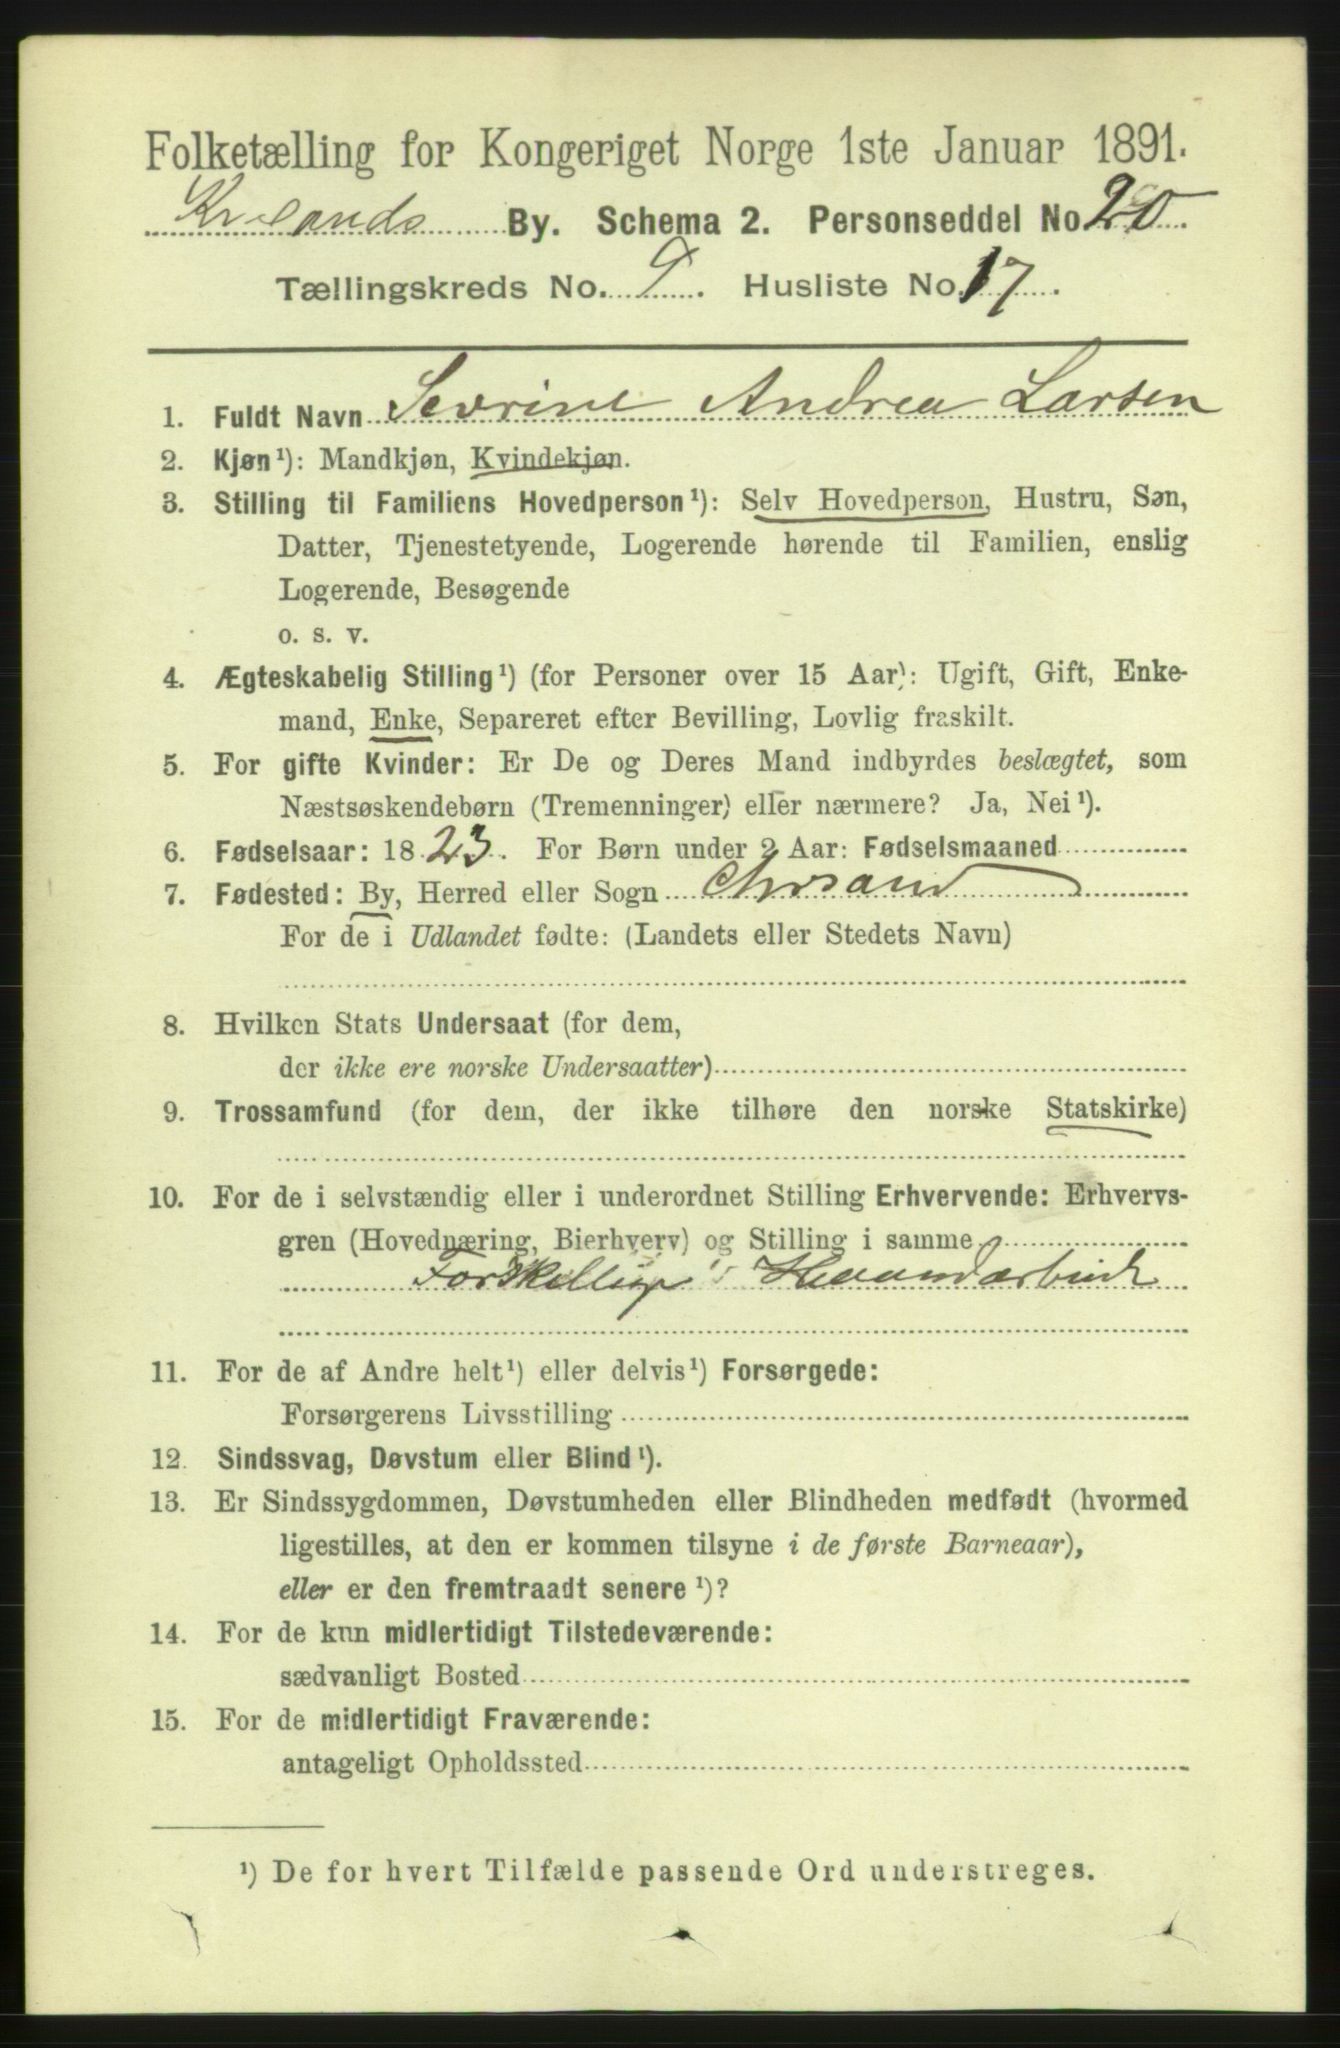 Folketælling for Kongeriget Norge 1ste Januar 1891.
Krsands By. Schema 2. Personseddel No. 20.
Tællingskreds No. 9. Husliste No. 17.
1. Fuldt Navn Sevrine Andrea Larsen
2. Kjøn¹): Mandkjøn, Kvindekjøn.
3. Stilling til Familiens Hovedperson¹): Selv Hovedperson, Hustru, Søn,
Datter, Tjenestetyende, Logerende hørende til Familien, enslig
Logerende, Besøgende
o. s. v.
4. Ægteskabelig Stilling¹) (for Personer over 15 Aar): Ugift, Gift, Enke-
mand, Enke, Separeret efter Bevilling, Lovlig fraskilt.
5. For gifte Kvinder: Er De og Deres Mand indbyrdes beslægtet, som
Næstsøskendebørn (Tremenninger) eller nærmere? Ja, Nei¹).
6. Fødselsaar: 1823. For Børn under 2 Aar: Fødselsmaaned
7. Fødested: By, Herred eller Sogn Chrsand
For de i Udlandet fødte: (Landets eller Stedets Navn)
8. Hvilken Stats Undersaat (for dem,
der ikke ere norske Undersaatter)
9. Trossamfund (for dem, der ikke tilhøre den norske Statskirke)
10. For de i selvstændig eller i underordnet Stilling Erhvervende: Erhvervs-
gren (Hovednæring, Bierhverv) og Stilling i samme
Forskellige Haandarbeide
11. For de af Andre helt¹) eller delvis¹) Forsørgede:
Forsørgerens Livsstilling
12. Sindssvag, Døvstum eller Blind¹).
13. Er Sindssygdommen, Døvstumheden eller Blindheden medfødt (hvormed
ligestilles, at den er kommen tilsyne i de første Barneaar),
eller er den fremtraadt senere¹)?
14. For de kun midlertidigt Tilstedeværende:
sædvanligt Bosted
15. For de midlertidigt Fraværende:
antageligt Opholdssted
¹) De for hvert Tilfælde passende Ord understreges.